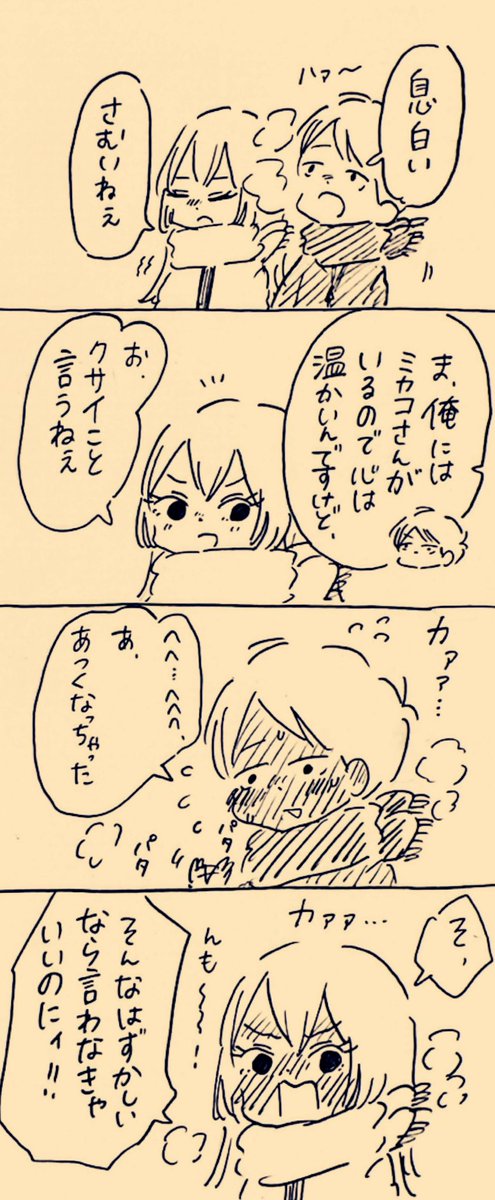 息白い
ハァ〜
さむいねぇ
ま、俺には
ミカコさんが
いるので心は
温かいんですけど、
お、
クサイこと
言うねぇ
カァァ…
へへ…へへへ、
あ、
あつくなっちゃった
パタ
パタ
そ、
カァァ…
んも〜〜〜!
そんなはずかしい
なら言わなきゃ
いいのにィ!!